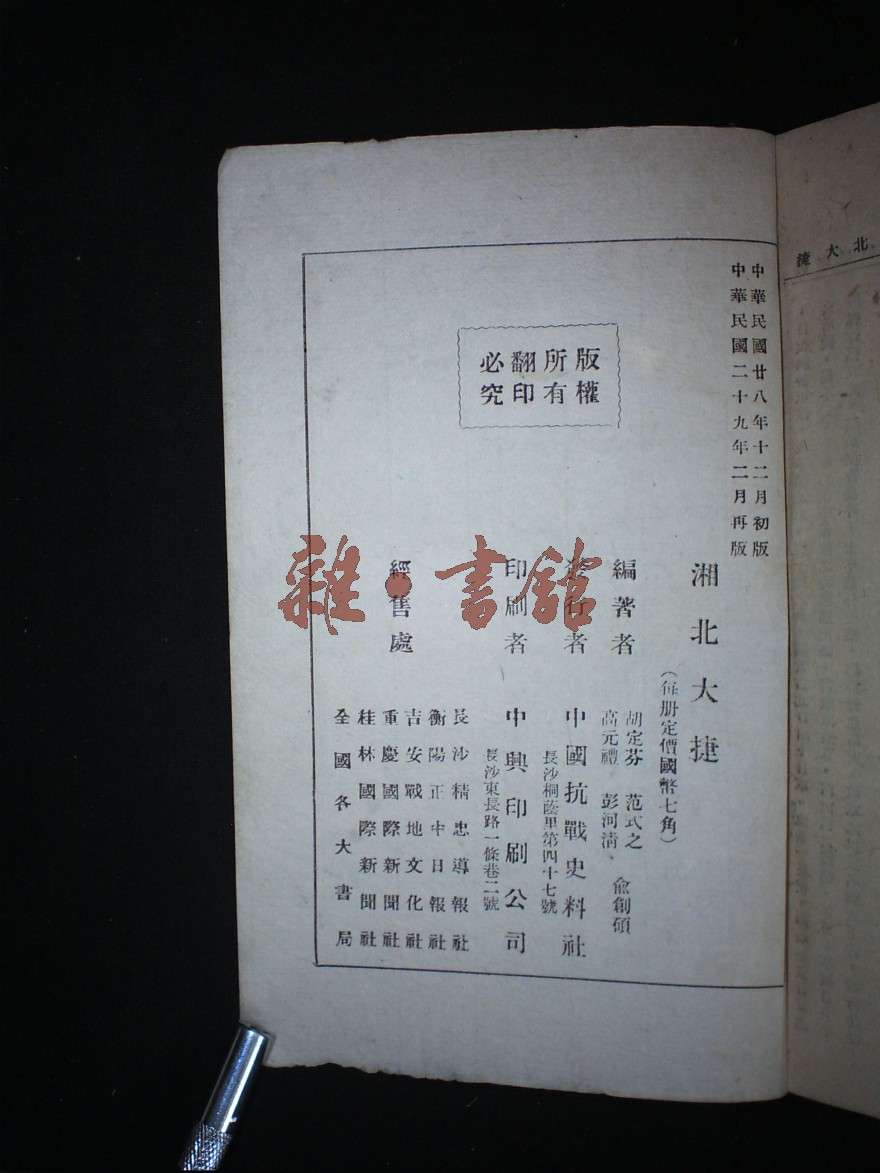 中華民國廿八年十二月初版
中華民國二十九年二月再版
湘北大捷
（每册定價國幣七角）
編著者
胡定芬 范式之
高元禮 彭河淸、俞創碩
發行者
中國抗戰史料社
長沙桐蔭里第四十七號
印刷者
中興印刷公司
長沙東長路一條巷二號
經售處
長沙精忠導報社
衡陽正中日報社
吉安戰地文化社
重慶國際新聞社
桂林國際新聞社
全國各大書局
版權
所有
翻印
必究
北大捷
雜·書館